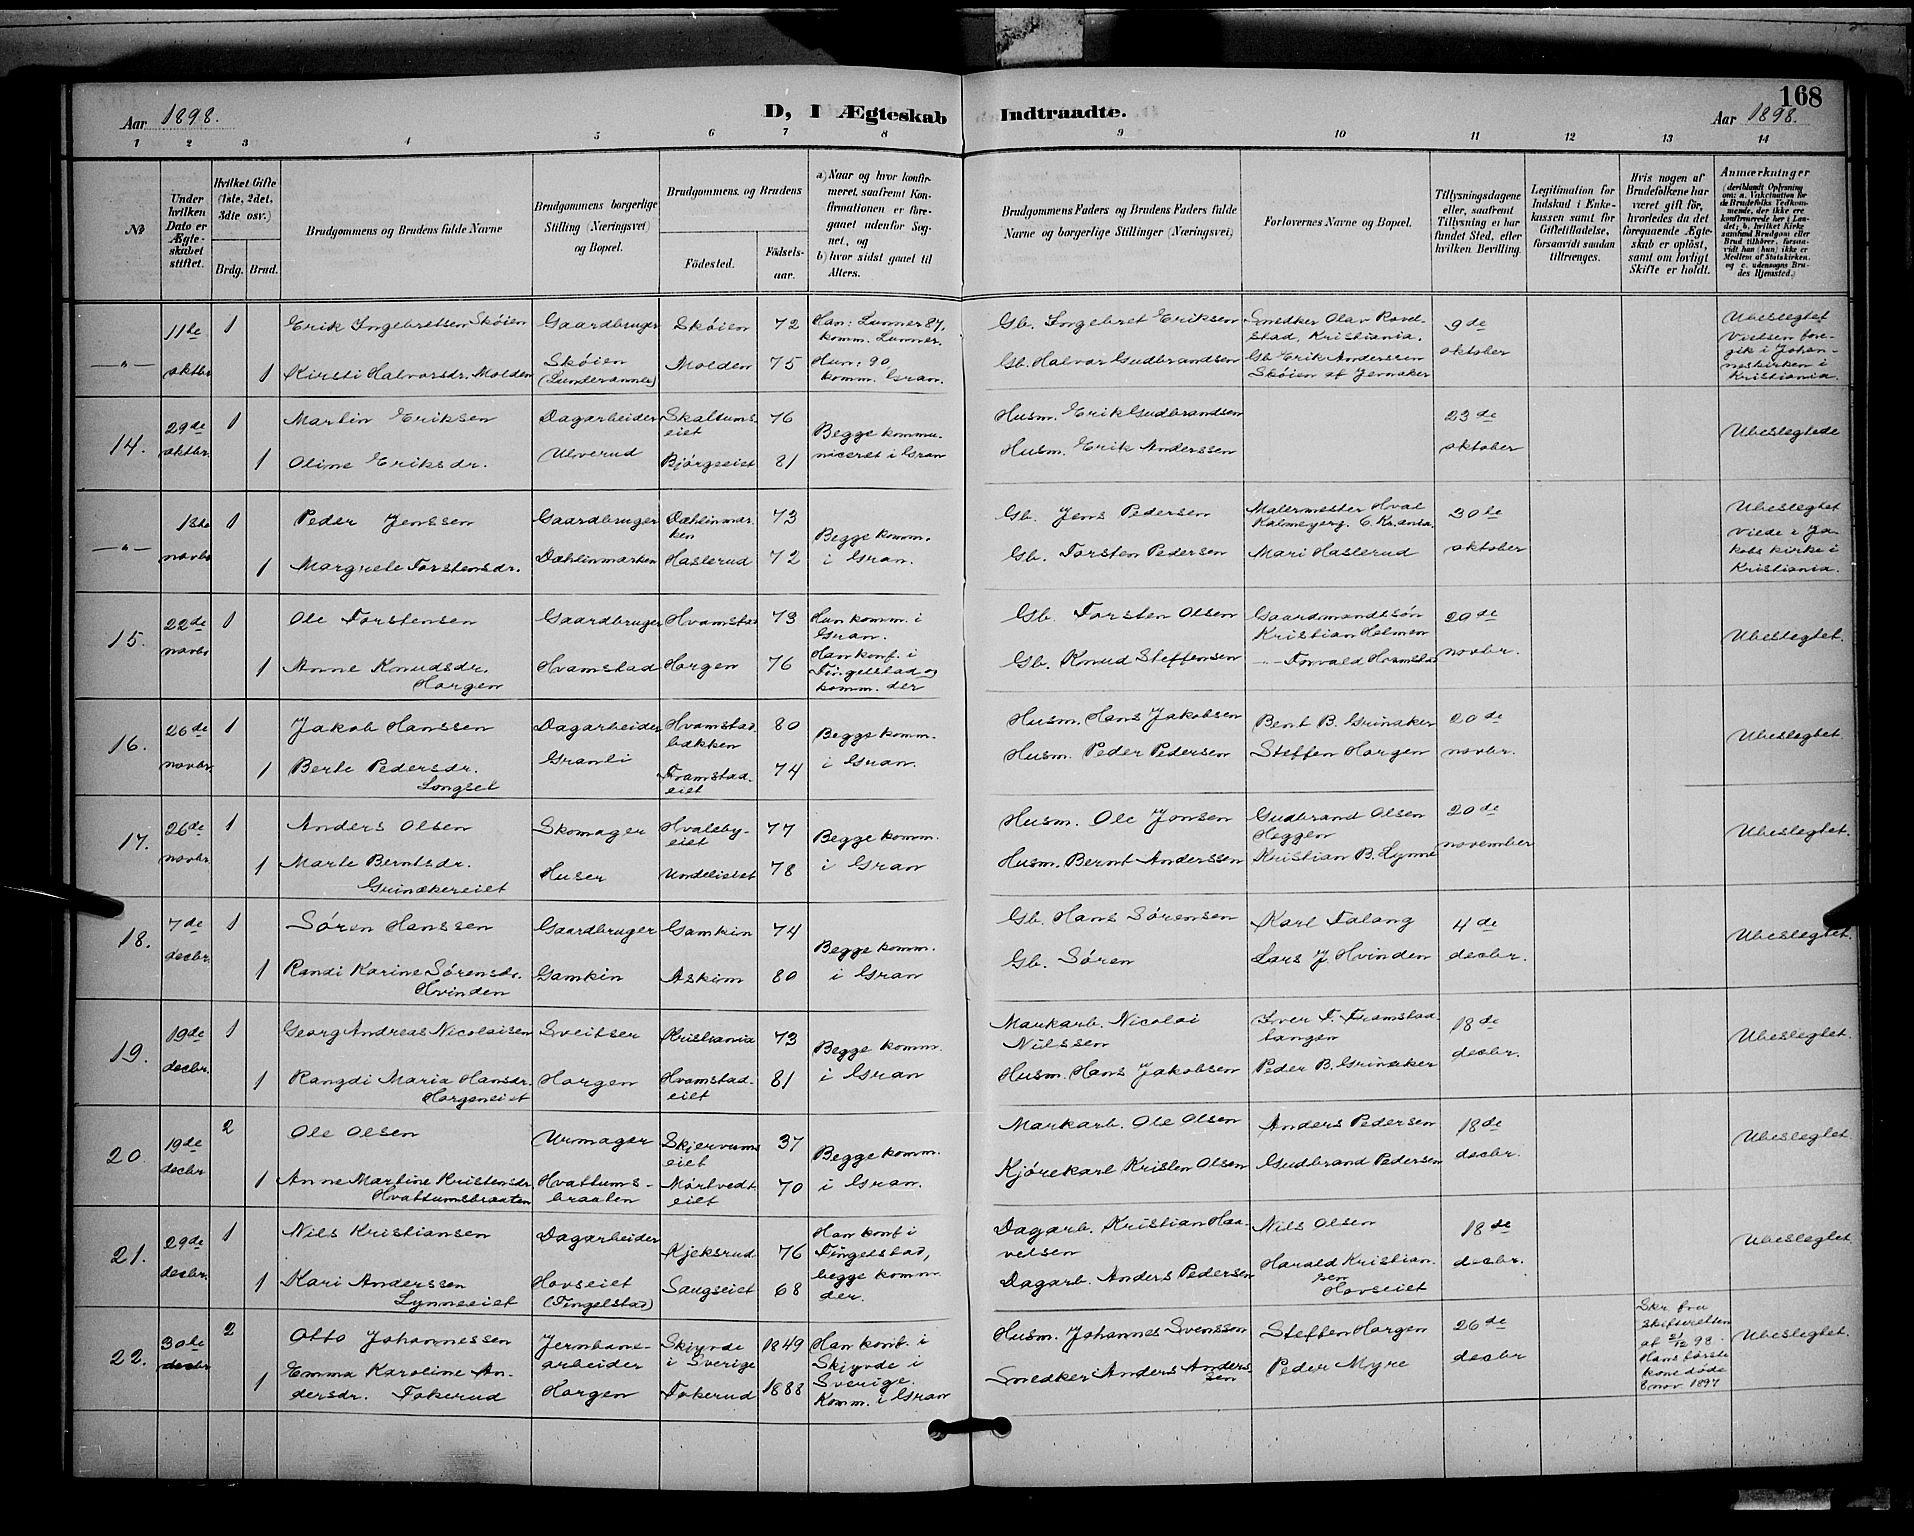 168
Aar 1898.
D, I Ægteskab Indtraadte.
Aar 1898.
1 2 3 4 5 6 7 8 9 10 11 12 13 14
№
Under hvilken Dato er Ægteskabet stiftet.
Hvilket Gifte (1ste, 2det, 3die osv.)
Brdg. Brud.
Brudgommens og Brudens fulde Navne
Brudgommens borgerlige Stilling (Næringsvei) og Bopæl.
Brudgommens og Brudens
Fødested. Fødselsaar.
a) Naar og hvor konfirmeret, saafremt Konfirmationen er foregaaet udenfor Sognet, og
b) hvor sidst gaaet til Alters.
Brudgommens Faders og Brudens Faders fulde Navne og borgerlige Stillinger (Næringsvei)
Forlovernes Navne og Bopæl.
Tillysningsdagene eller, saafremt Tillysning ei har fundet Sted, efter hvilken Bevilling.
Legitimation for Indskud i Enkekassen samt for Giftetilladelse, forsaavidt saadan tiltrænges.
Hvis nogen af Brudefolkene har været gift før, hvorledes da det foregaaende Ægteskab er opløst, samt om lovligt Skifte er holdt.
Anmærkninger
(deriblandt Oplysning om: a. Vakcination for de Brudefolks Vedkommende, der ikke ere konfirmerede her i Landet; b. hvilket Kirkesamfund Brudgom eller Brud tilhører, forsaavidt han (hun) ikke er Medlem af Statskirken, og c. udensogns Brudes Hjemsted.)
—"— 11te oktbr 1 Erik Ingebretsen Skøien Gaardbruger Skøien 72 Han: Lunner 87, komm. Lunner. Gb. Ingebret Eriksen Snedker Olav Rovdstad, Kristiania. 9de oktober Ubeslegtet Vielsen foregik i Johanneskirken i Kristiania.
1 Kirsti Halvorsdr. Molden Skøien (Lunderannex) Molden 75 Hun: 90, komm. Gran. Gb. Halvor Gudbrandsen Gb. Erik Anderssen Skøien af Jevnaker
14. 29de oktbr. 1 Martin Eriksen Dagarbeider Skaltumseiet 76 Begge kommuniceret i Gran Husm. Erik Gudbrandsen 23de oktober Ubeslegtede
1 Oline Eriksdr. Ulverud Bjørgeeiet 81 Husm. Erik Anderssen
—"— 1ste novbr 1 Peder Jenssen Gaardbruger Dæhlinmarken 73 Begge komm. i Gran. Gb. Jens Pedersen Malermester Hval Kalmeyerg. 6. Kr.ania. 30te oktober Ubeslegtet Viede i Jakobs kirke i Kristiania.
1 Margrete Torstensdr. Dæhlinmarken Haslerud 72 Gb. Torsten Pedersen Mari Haslerud
15. 22de novbr 1 Ole Torstensen Gaardbruger Hvamstad 73 Han komm. i Gran. Gb. Torsten Olsen Gaardmandssøn Kristian Holmen 20de novbr. Ubeslegtet.
1 Anne Knudsdr. Horgen Hvamstad Horgen 76 Han konf. i Tingelstad og komm. der Gb. Knud Steffensen —"— Torvald Hvamstad
16. 26de novbr. 1 Jakob Hanssen Dagarbeider Hvamstadbakken 80 Begge komm. i Gran. Husm. Hans Jakobsen Bent B. Grinaker 20de novbr. Ubeslegtet.
1 Berte Pedersdr. Longset Granli Framstadeiet 74 Husm. Peder Pedersen Steffen Horgen
17. 26de novbr. 1 Anders Olsen Skomager Hvalebyeiet 77 Begge komm. i Gran Husm. Ole Jonsen Gudbrand Olsen Heggen 20de november Ubeslegtet.
1 Marte Berntsdr. Grinakereiet Huser Undelieiet 78 Husm. Bernt Anderssen Kristian B. Lynne
18. 7de decbr. 1 Søren Hanssen Gaardbruger Gamkin 74 Begge komm. i Gran Gb. Hans Sørensen Karl Falang 4de decbr. Ubeslegtet.
1 Randi Karine Sørensdr. Hvinden Gamkin Askim 80 Gb. Søren Lars J. Hvinden
19. 19de decbr. 1 Georg Andreas Nicolaisen Sveitser Kristiania 73 Begge komm. i Gran Markarb. Nicolai Nilssen Iver T. Framstadtangen 18de decbr. Ubeslegtet.
1 Rangdi Maria Hansdr. Horgeneiet Horgen Hvamstadeiet 81 Husm. Hans Jakobsen Peder B. Grinaker
20 19de decbr 2 Ole Olsen Urmager Skjervumseiet 37 Begge komm. i Gran. Markarb. Ole Olsen Anders Pedersen 18de decbr. Ubeslegtet.
1 Anne Martine Kristensdr. Hvattumsbraaten Hvattumsbraaten Mørtvedteiet 70 Kjørekarl Kristen Olsen Gudbrand Pedersen
21. 29de decbr. 1 Nils Kristiansen Dagarbeider Kjeksrud 76 Han konf i Tingelstad, begge komm. der. Dagarb. Kristian Haavelsen Nils Olsen 18de decbr. Ubeslegtet.
1 Kari Anderssen Lynneeiet Hovseiet (Tingelstad) Saugseiet 68 Dagarb. Anders Pedersen Harald Kristiansen Hovseiet
22. 30te decbr 2 Otto Johannessen Jernbanearbeider Skjynde i Sverige 1849 Han konf. i Skjynde i Sverige. Komm. i Gran Husm. Johannes Svenssen Steffen Horgen 26de decbr Skr. fra Skifteretten af 2/12 98. Hans første kone døde 8 nov. 1897 Ubeslegtet.
1 Emma Karoline Andersdr. Tokerud Horgen Tokerud 1888 Snedker Anders Anderssen Peder Myre